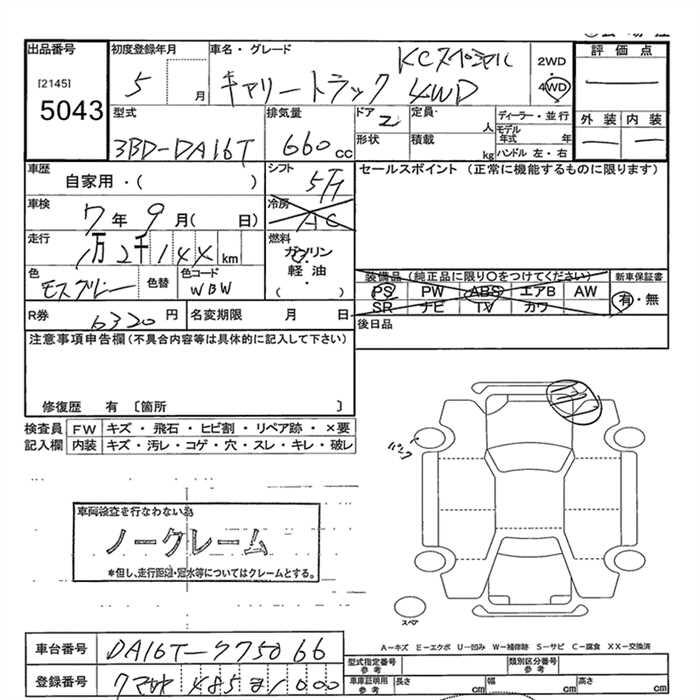 出品番号
[2145]
5043
初度登録年月
5 月
車名・グレード
KCスペシャル
キャリートラック 4WD
2WD
・
4WD
評価点
外装 内装
型式
3BD-DA16T
排気量
660 cc
ドア
2
定員・ 人
形状
積載 kg
ディーラー・並行
モデル年式 年
ハンドル 左・右
車歴
自家用・( )
シフト
5
セールスポイント (正常に機能するものに限ります)
車検
7年 9月( 日)
冷房
AC
走行
1万2千144 km
燃料
ガソリン
軽油・
( )
色
モスグレー
色替
色コード
WBW
装備品 (純正品に限り〇をつけてください)
PS PW ABS エアB AW
SR ナビ TV カワ
新車保証書
有・無
R券 6320 円
名変期限 月 日
後日品
注意事項申告欄(不具合内容等は具体的に記入して下さい)
修復歴 有 〔箇所 〕
検査員 FW キズ・飛石・ヒビ割・リペア跡・×要
記入欄 内装 キズ・汚レ・コゲ・穴・スレ・キレ・破レ
パンク
車両検査を行なわない為
ノークレーム
*但し、走行距離・冠水等についてはクレームとする。
スペア
A－キズ E－エクボ U－凹み W－補修跡 S－サビ C－腐食 XX－交換済
車台番号 DA16T-775066
登録番号
型式指定番号
参考
類別区分番号
参考
車庫証明用
参考
長さ cm 幅 cm 高さ cm